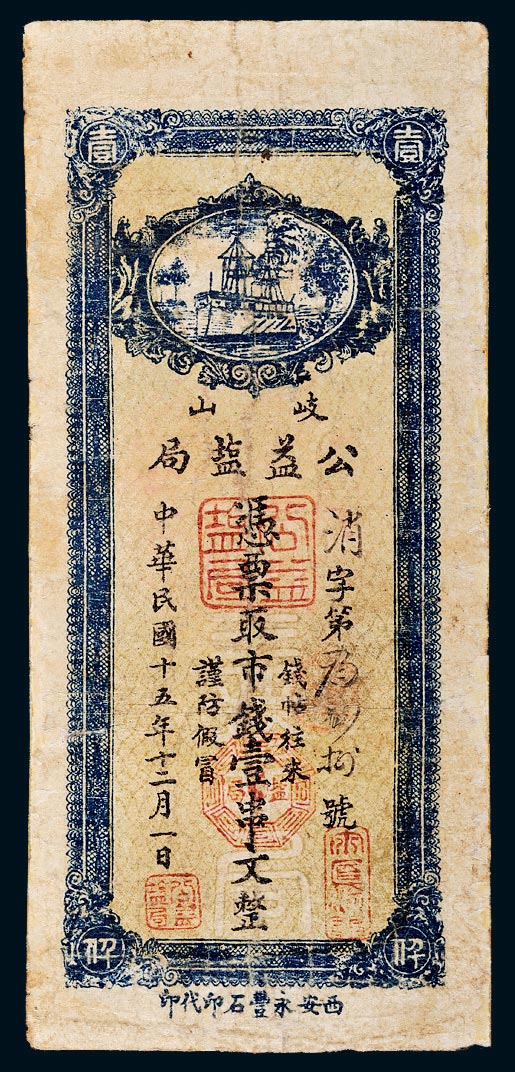 壹
壹
岐山
公益塩局
消字第號
錢帖往來
憑票取市錢壹串文整
謹防假冒
中華民國十五年十二月一日
公益塩局
公益塩局
西安永豐石印代印